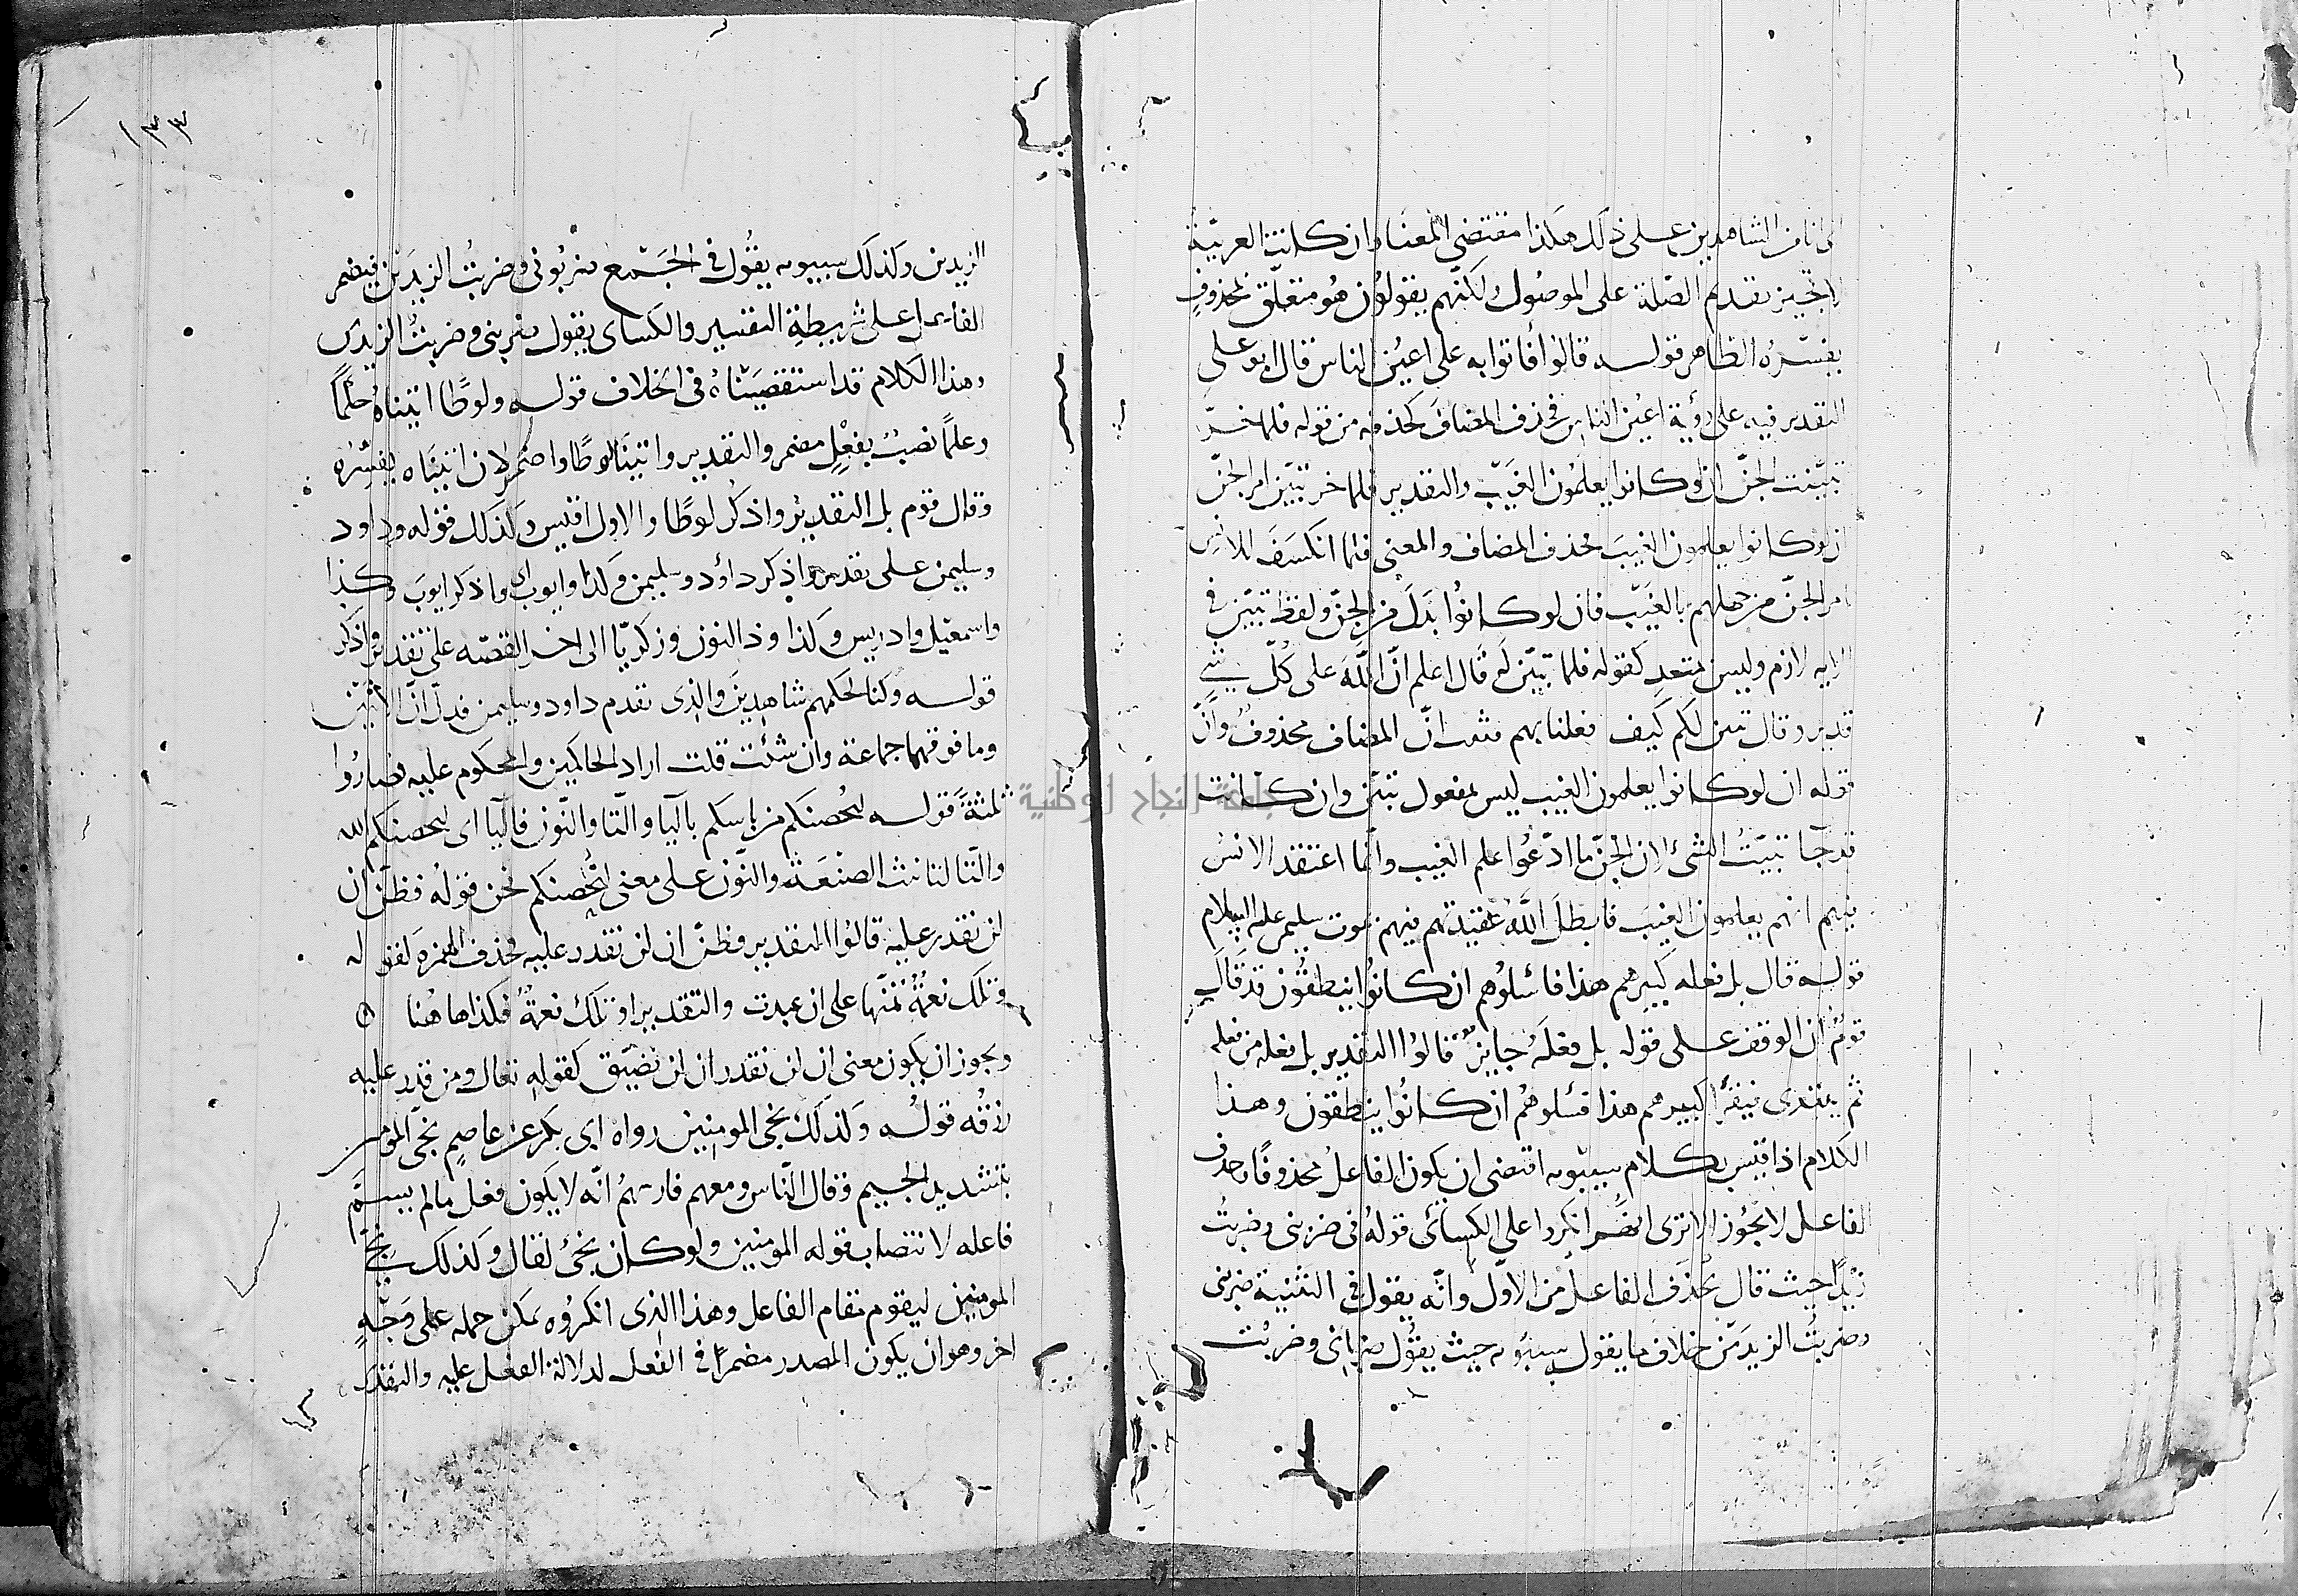 انا من الشاهدين على ذلك هكذا مقتضى المعنا وان كانت العربيّة
لا تجيز تقديم الصّلة على الموصُول ولكنّهم يقولوُن هُو متعلّق بمحذوفٍ
يفسّرهُ الظاهر قولـه قالوُا فأتوا به على اعيُن الناس قال ابو على
التقدير فيه على رؤية اعيُن الناس فحذف المضافَ كحذفه من قوله فلما خرّ
تبيّنت الجنّ ان لو كانوا يعلمُون الغَيْب والتقدير فلما خر تبيّن امر الجنّ
ان لو كانوا يعلمون الغيبَ فحذف المضاف والمعنى فلما انكسَفَ للانسِ
امر الجنّ من جهلهم بالغَيْب فان لو كانُوا بَدَلَ من الجنّ ولفظ تبيّن فى
الايه لازم وليس بمتعدٍ كقوله فلما تبيّن لَهُ قَال اعلم انّ اللّهَ على كُلّ شَىْءٍ
قدير وقال تبين لكم كَيف فعلنا بهم فثبت انّ المضاف محذوفٌ وانّ
قوله ان لو كانوا يعلمون الغيب ليس بمفعول تبيّن وان كانت
قد جَآ تبيّنتُ الشئ لان الجنّ ما ادّعُوا علم الغيب وانّما اعتقد الانسُ
فيهم انهم يعلمون الغيبَ فابطلَ اللّهُ عَقيدتهم فيهم بموت سليمن عليه السلام
قولـه قال بل فعله كَبيرهم هذا فاسئلوُهم ان كانُوا ينطقُون قد قَالَ
قومٌ ان الوقف على قوله بل فعلَهُ جايزٌ قالوُا التقدير بل فعله من فعله
ثم يبتدى فيقرأ كبيرهم هذا فسئلوهُم ان كانُوا ينطقون وهـذا
الكلام اذا قيس بكلام سيبويه اقتضى ان يكون الفاعلُ محذوفًا وحذف
الفاعـل لا يجُوز الا ترى انهُم انكروا على الكسائى قولهُ فى ضربنى وضربتُ
زيدًا حيث قال بحذف الفاعل من الاوّل وانّه يقول فى التثنية ضربنى
وضربتُ الزيدَيْن خلاف ما يقول سيبويه حيث يقوُل ضربانى وضربت
١٣٣
الزيدين وكذلك سيبويه يقُول فى الجَمْع ضربُونى وضربتُ الزيدين فيضمر
الفاعل على شريطةِ التفسير والكساى يقول ضربنى وضربتُ الزيدين
وهذا الكلام قد استقصَيْناهُ فى الخلاف قولـه ولوطًا اتيناهُ حُكمًا
وعلمًا نصبٌ بفعْلٍ مضمر والتقدير واتينا لوطًا واضمر لان اتيناه يفسّره
وقال قوم بل التقدير واذكُر لوطًا والاول اقيس وكذلك قوله وداود
وسليمن على تقدير واذكر داؤد وسليمن وكذا وايوب اى واذكر ايوبَ وكذا
واسمعيل وادريس وكذا وذا النون وزكريّا الى اخر القصّه على تقدير واذكر
قولـه وكنا لحكمهم شاهدِينَ والذى تقدم داود وسليمن فدلّ انّ الاثنين
وما فوقهما جماعة وان شئت قلت اراد الحاكمين والمحكوم عليه فصارُوا
ثلثةً قولـه ليُحصنكم من باسكم باليا والتّا والنّون فاليا اى ليحصنكم الله
والتّا لتانيث الصنعَة والنّون على معنى لنُحصنكم نحن قولُه فظنّ ان
لن نقدر عليه قالوُا التقدير وظنّ ان لن نقدر عليه فحذف الهمزة كقوله
وتلك نعمةٌ تمنّها على ان عبدت والتقدير او تلك نعمةٌ فكذا هاهُنا ۝
ويجوز ان يكون معنى ان لن نقدر ان لن نضيّق كقوله تعالى ومن قدر عليه
رزقُه قولُه وكذلك نجى المومنين رواه ابى بكر عن عاصمٍ نجّى المومنين
بتشديد الجيم وقال النّاس ومعهم انّه لا يكون فعل ما لم يسمّ
فاعله لانتصاب قوله المومنين ولو كان نجىّ لقال وكذلك نجّى
المومنين ليقوم مقام الفاعل وهذا الذى انكروُه يمكن حمله على وَجْهٍ
اخر وهو ان يكون المصدر مضمرًا فى الفعل لدلالة الفعل عليه والتقدير
جامعة النجاح الوطنية